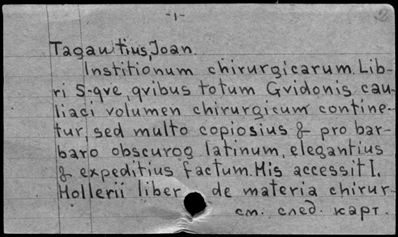 -1-
2
Tagautius, Joan.
Institionum chirurgicarum. Lib-
ri S-qve, qvibus totum Gvidonis cau-
liaci volumen chirurgicum contine-
tur, sed multo copiosius & pro bar-
baro obscuroq latinum, elegantius
& expeditius factum. His accessit I.
Hollerii liber de materia chirur-
см. след. карт.